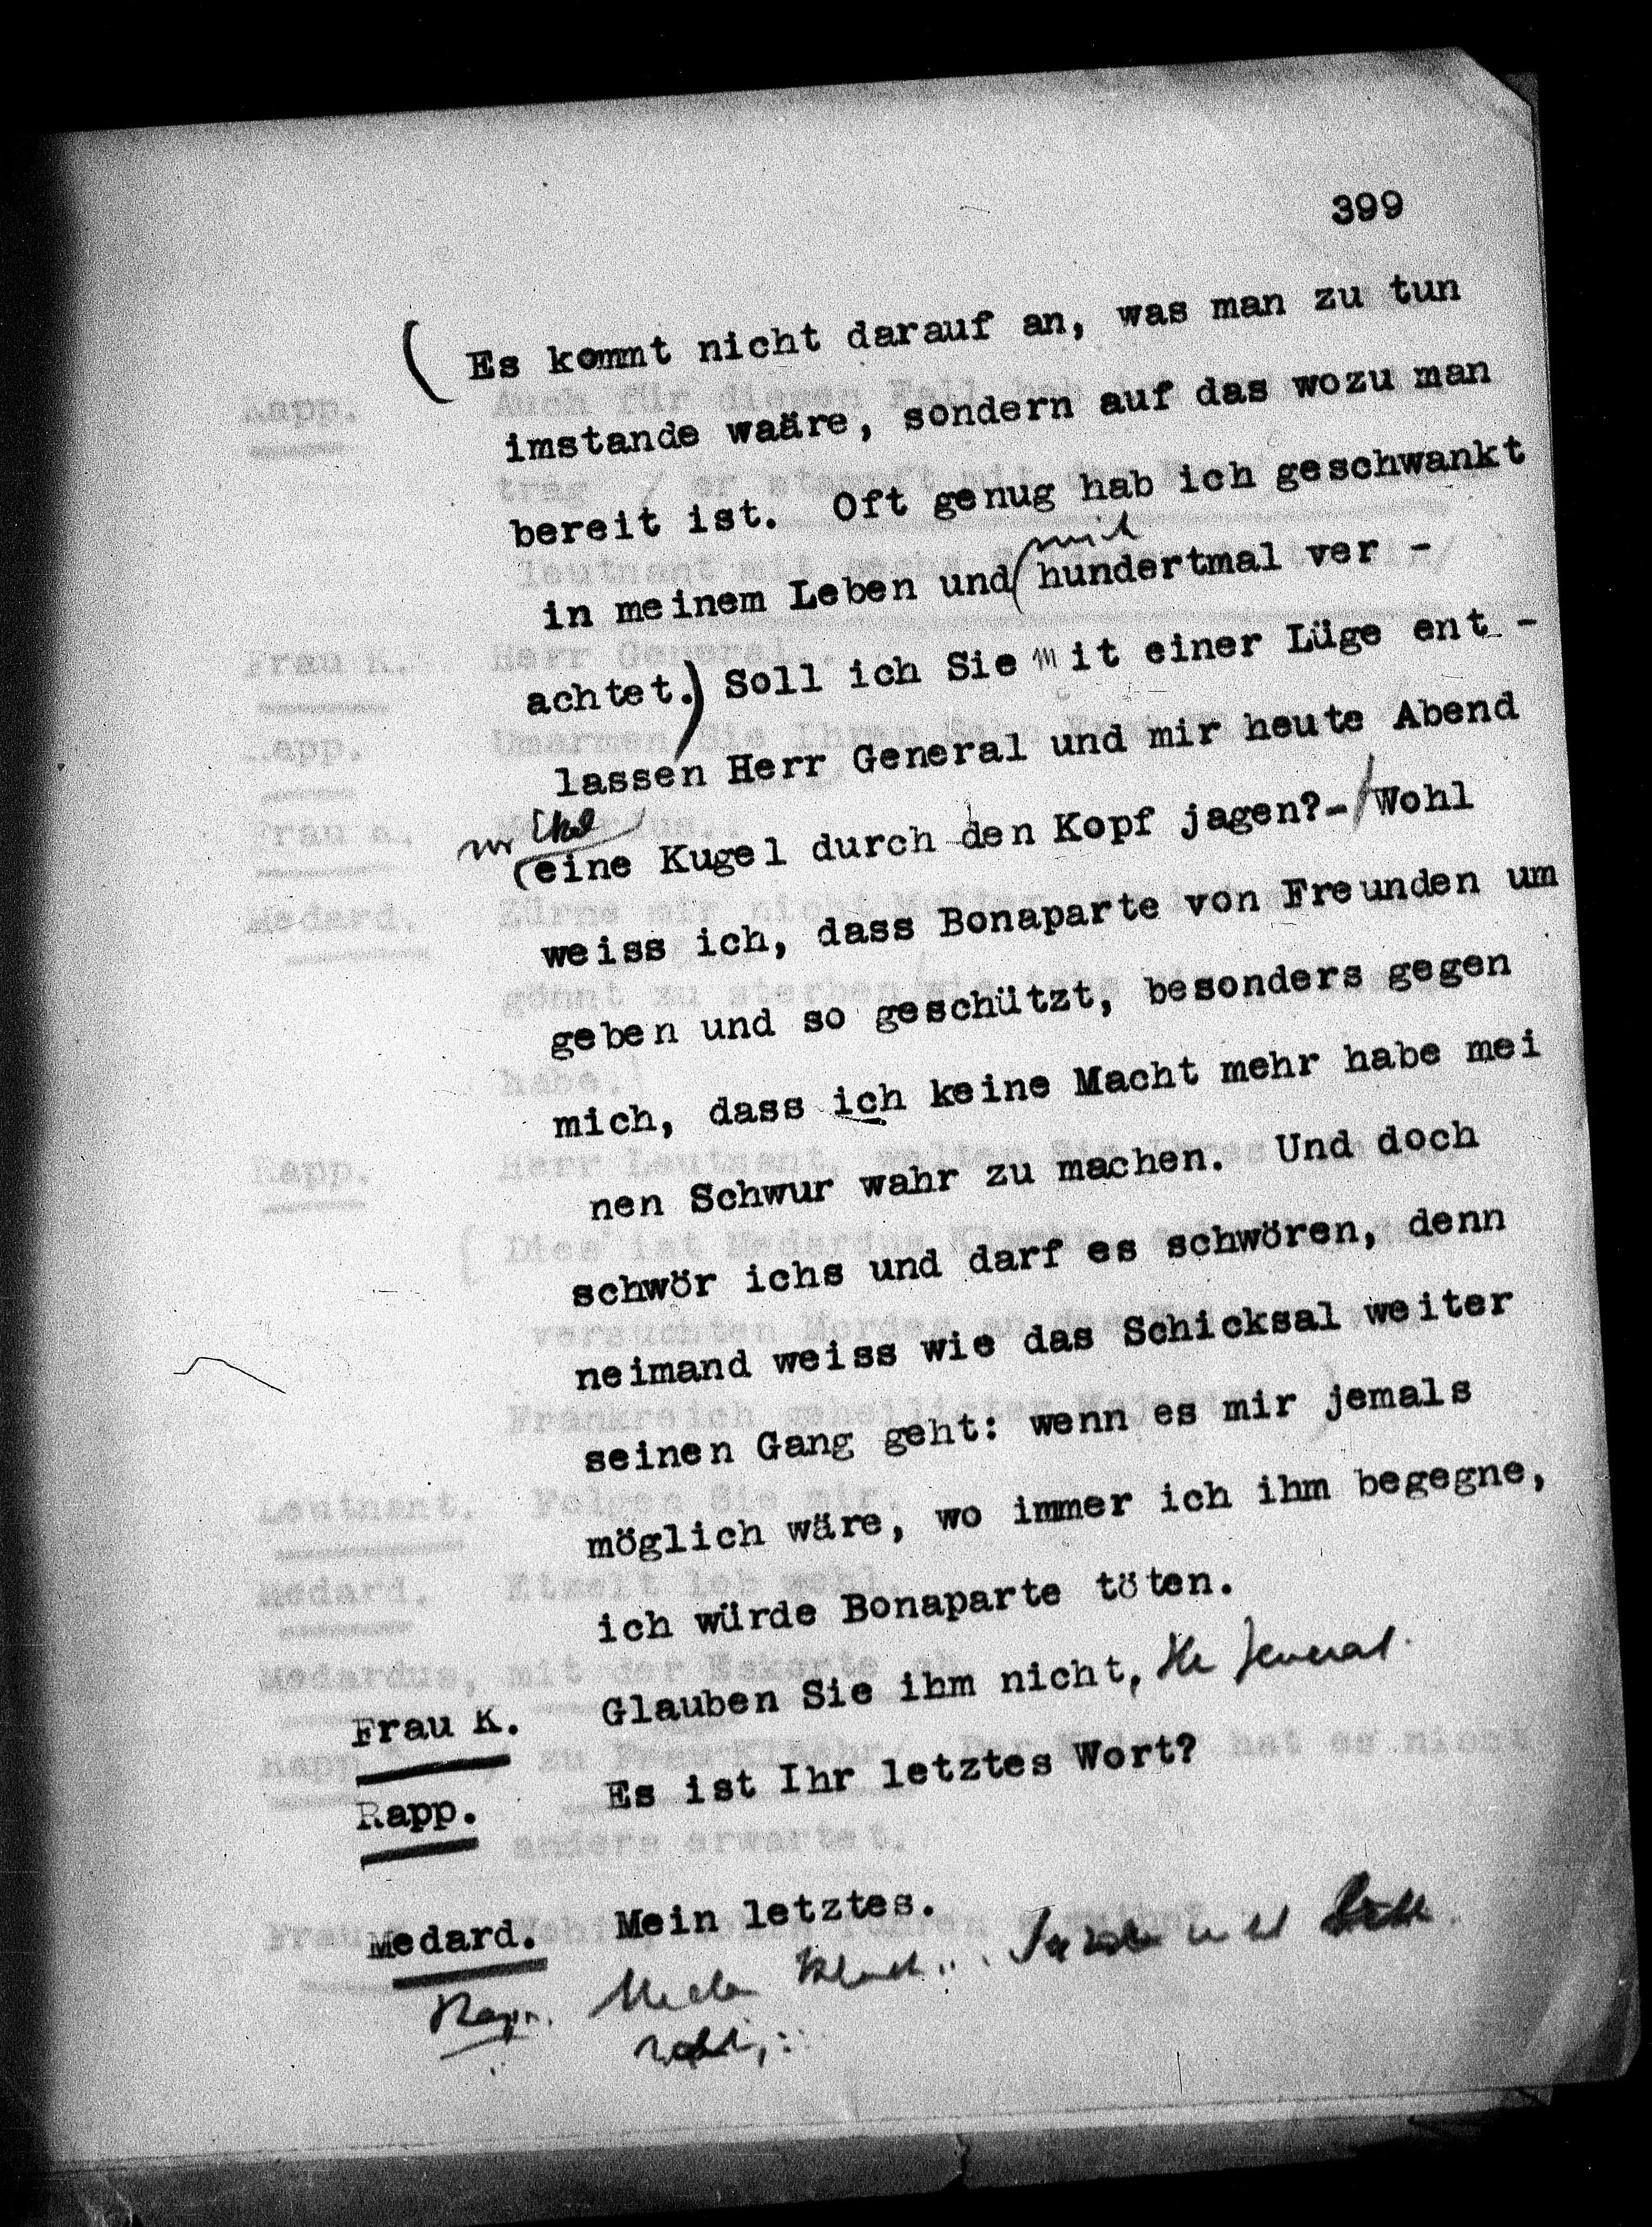 399
(Es kommt nicht darauf an, was man zu tun
imstande waäre, sondern auf das wozu man
bereit ist. Oft genug hab ich geschwankt
mich
in meinem Leben und (hundertmal ver -
achtet.) Soll ich Sie mit einer Lüge ent -
lassen Herr General und mir heute Abend
(eine Kugel durch den Kopf jagen?-/Wohl
weiss ich, dass Bonaparte von Freunden um
geben und so geschützt, besonders gegen
mich, dass ich keine Macht mehr habe mei
nen Schwur wahr zu machen. Und doch
schwör ichs und darf es schwören, denn
neimand weiss wie das Schicksal weiter
seinen Gang geht: wenn es mir jemals
möglich wäre, wo immer ich ihm begegne,
ich würde Bonaparte töten.
Frau K. Glauben Sie ihm nicht, Hr General.
Rapp. Es ist Ihr letztes Wort?
Medard. Mein letztes.
Rapp.